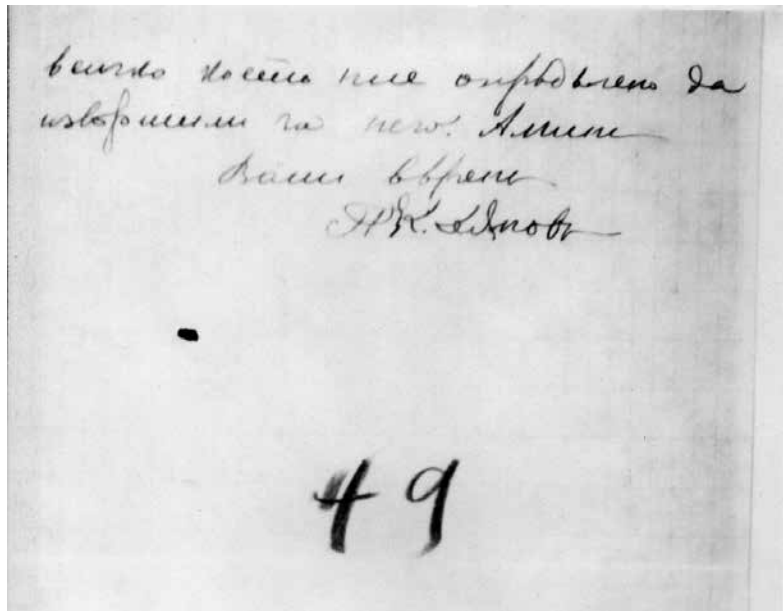 всичко което ние опрѣдѣлено да
извършим за него. Амин
Ваш вѣрен
49